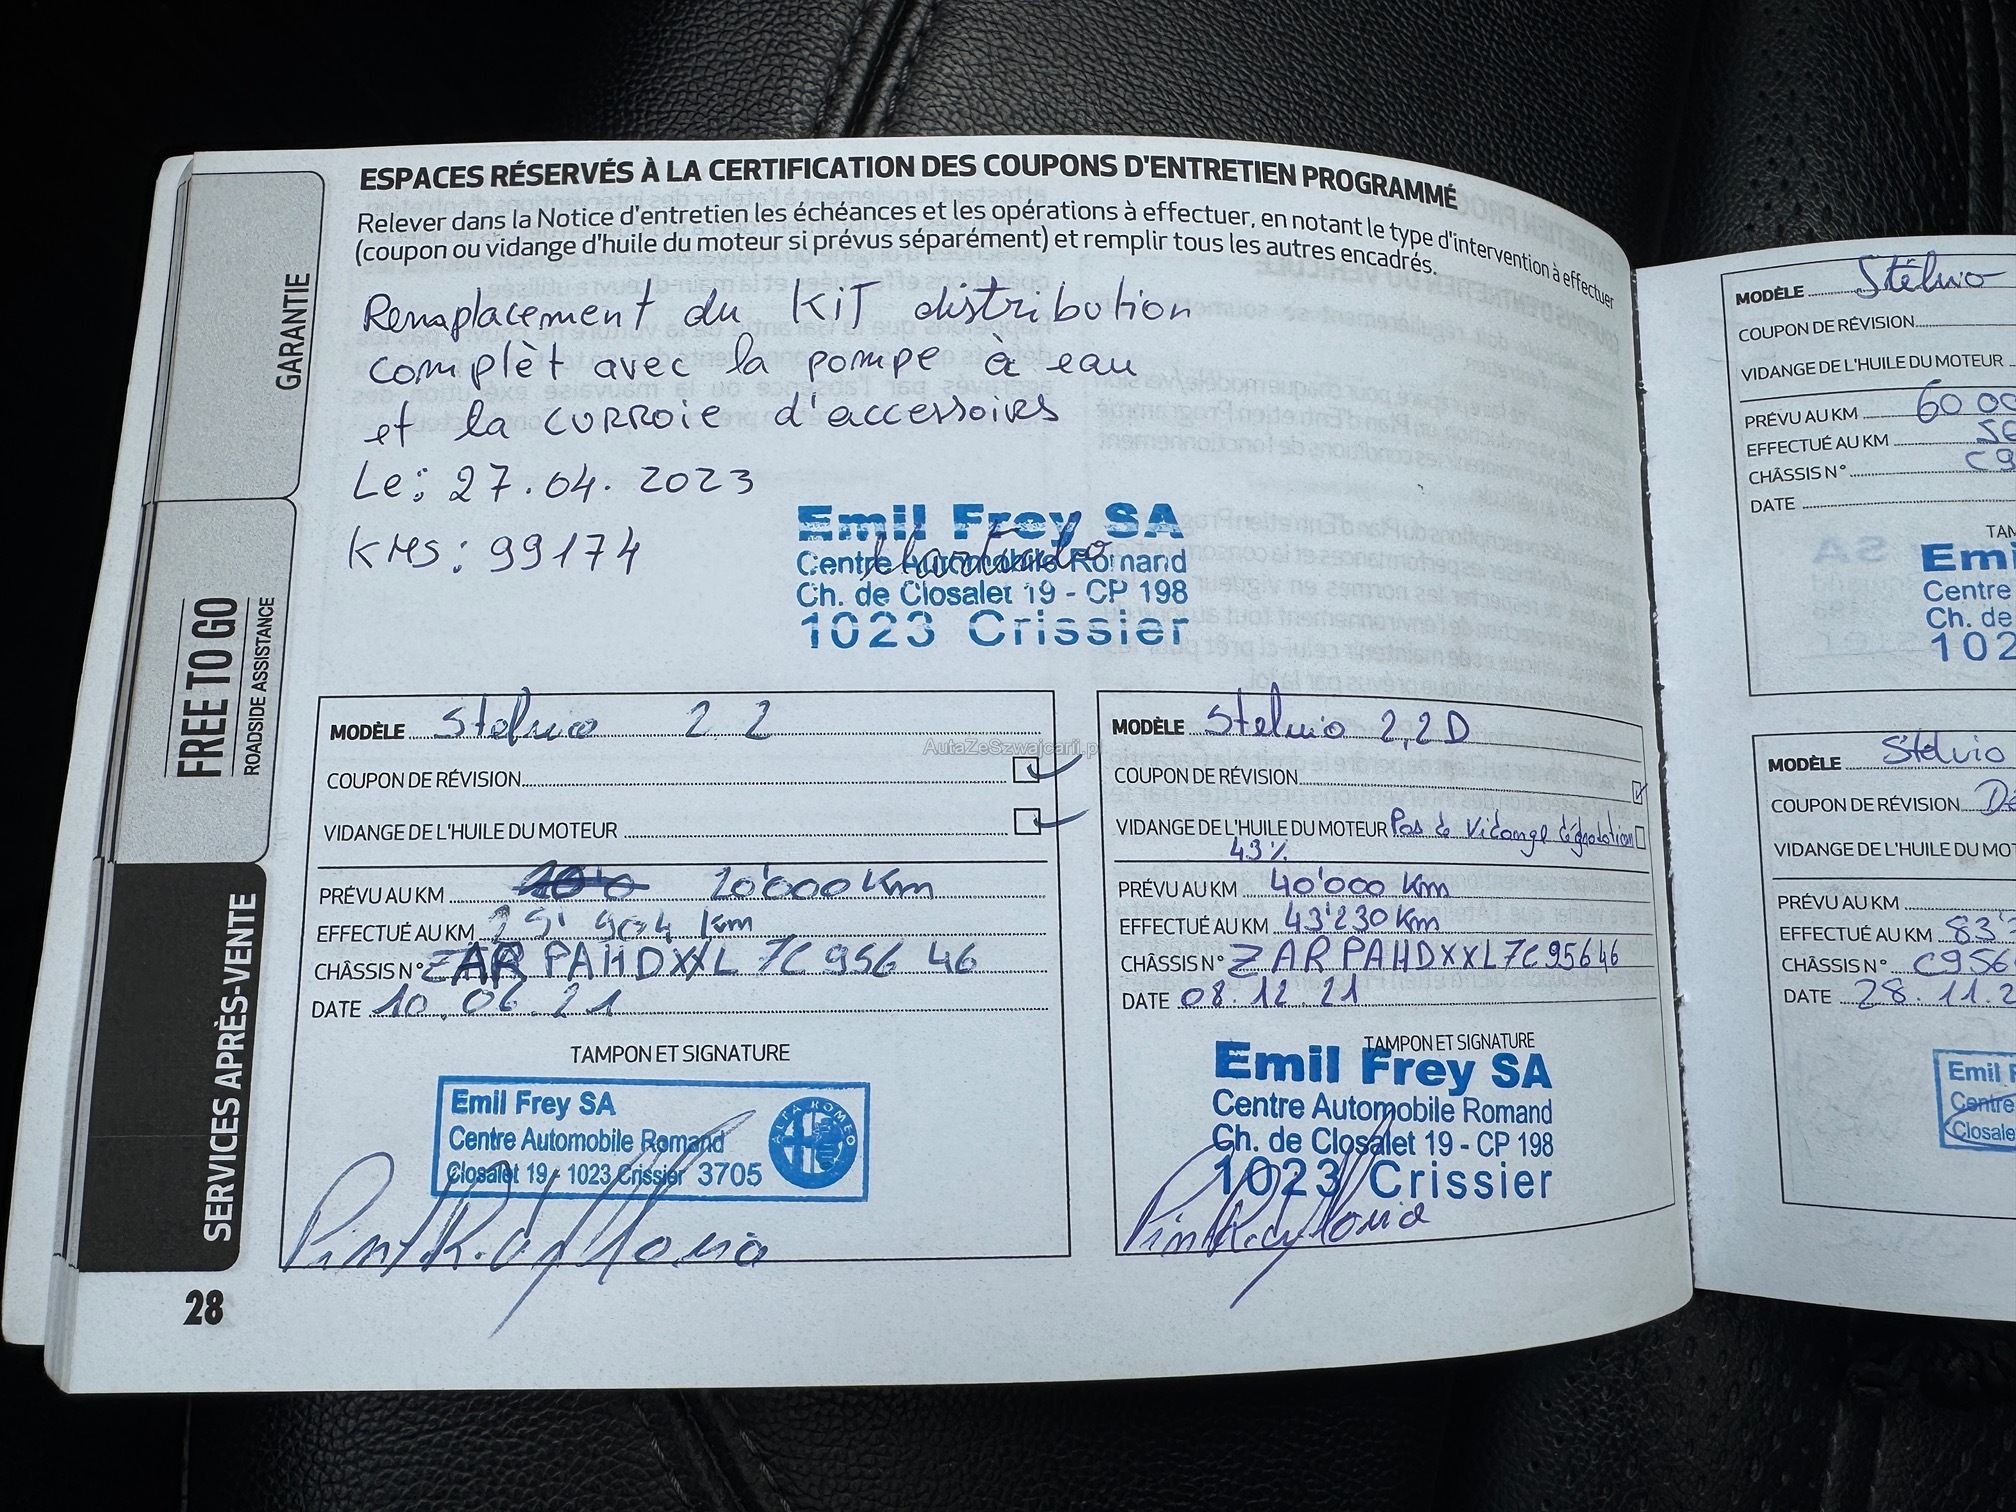 ESPACES RÉSERVÉS À LA CERTIFICATION DES COUPONS D'ENTRETIEN PROGRAMMÉ
Relever dans la Notice d'entretien les échéances et les opérations à effectuer, en notant le type d'intervention à effectuer
(coupon ou vidange d'huile du moteur si prévus séparément) et remplir tous les autres encadrés.
Remplacement du KIT distribution
complèt avec la pompe à eau
et la curroie d'accessoires
Le: 27.04.2023
KMS: 99174
Emil Frey SA
Centre Automobile Romand
Ch. de Closalet 19 - CP 198
1023 Crissier
GARANTIE
FREE TO GO
ROADSIDE ASSISTANCE
SERVICES APRÈS-VENTE
28
MODÈLE Stelvio 2.2
COUPON DE RÉVISION
VIDANGE DE L'HUILE DU MOTEUR
PRÉVU AU KM 20'000 Km
EFFECTUÉ AU KM 25'904 Km
CHÂSSIS N° ZARPAHDXXL7C95646
DATE 10.06.21
TAMPON ET SIGNATURE
Emil Frey SA
Centre Automobile Romand
Closalet 19 - 1023 Crissier 3705
ALFA ROMEO
MODÈLE Stelvio 2,2D
COUPON DE RÉVISION
VIDANGE DE L'HUILE DU MOTEUR Pas de Vidange dégradation
43%
PRÉVU AU KM 40'000 Km
EFFECTUÉ AU KM 43'230 Km
CHÂSSIS N° ZARPAHDXXL7C95646
DATE 08.12.21
TAMPON ET SIGNATURE
Emil Frey SA
Centre Automobile Romand
Ch. de Closalet 19 - CP 198
1023 Crissier
AutaZeSzwajcarii.pl
MODÈLE Stelvio
COUPON DE RÉVISION
VIDANGE DE L'HUILE DU MOTEUR
PRÉVU AU KM 60 00
EFFECTUÉ AU KM
CHÂSSIS N° C9
DATE
TAM
Emi
Centre
Ch. de
102
MODÈLE Stelvio
COUPON DE RÉVISION
VIDANGE DE L'HUILE DU MOT
PRÉVU AU KM
EFFECTUÉ AU KM 83'
CHÂSSIS N° C956
DATE 28.11.2
Emil F
Centre
Closale